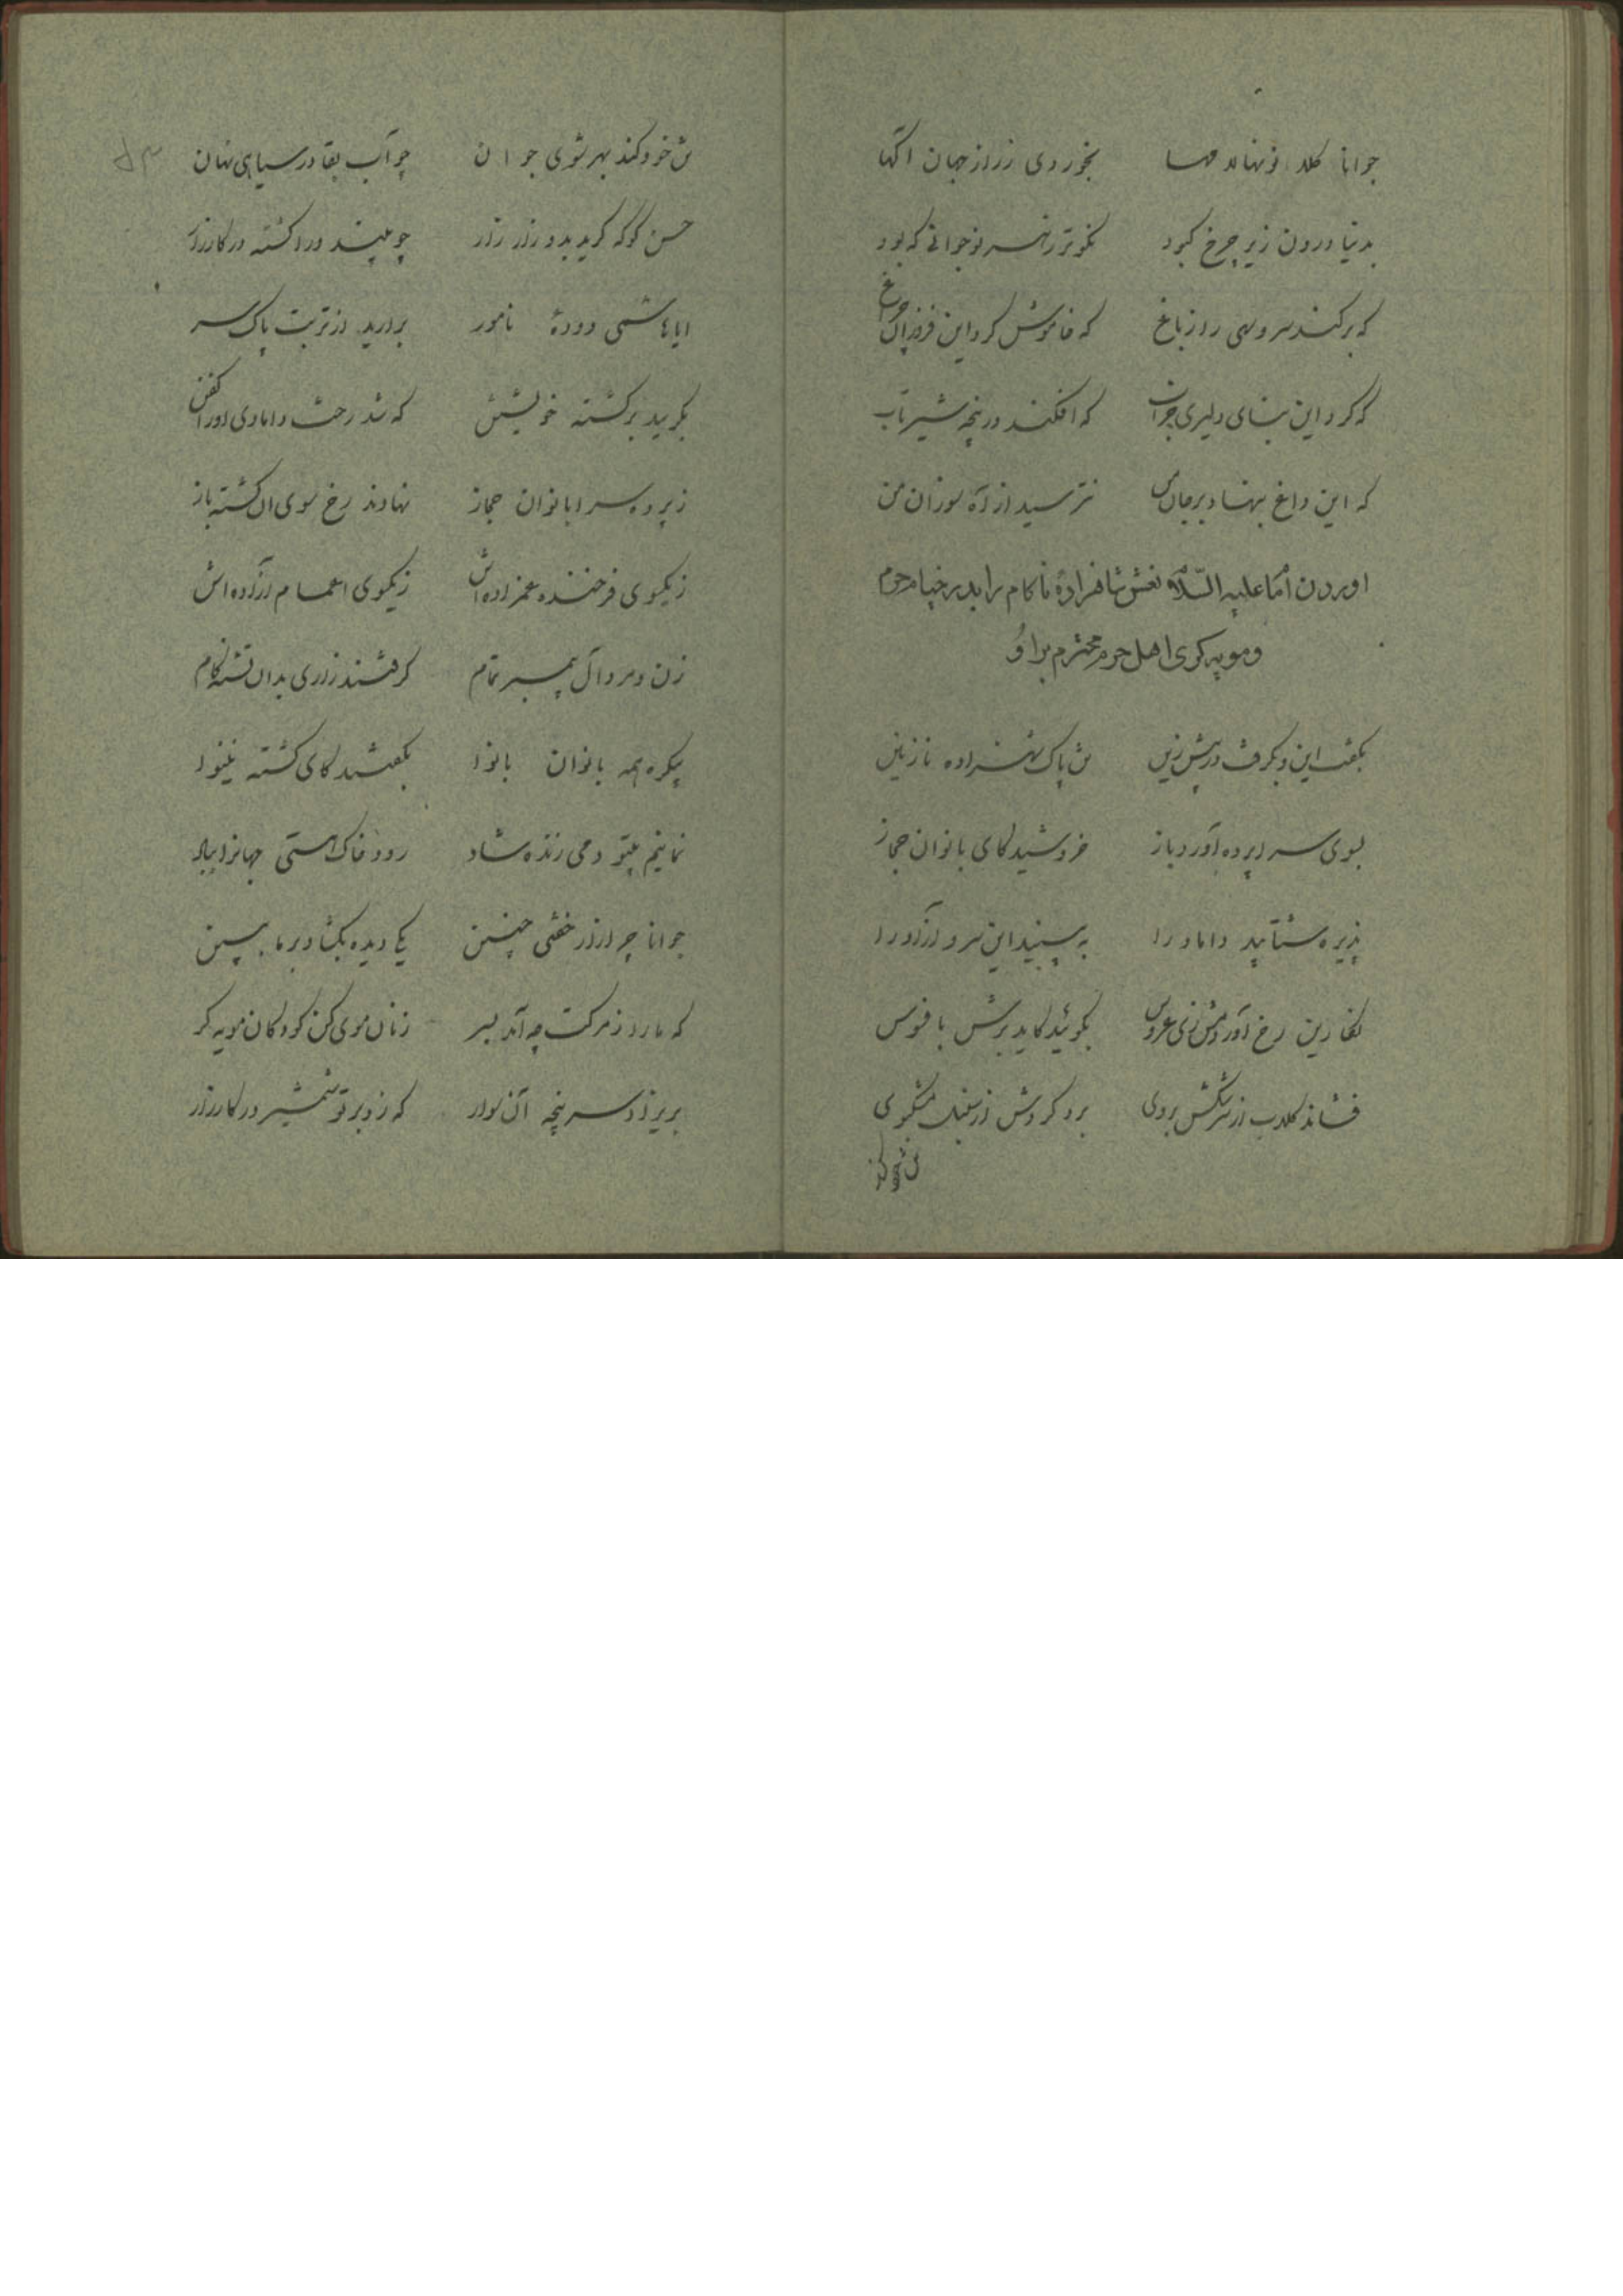 جوانا کلا نونهالا مها بخور دی زراز جهان اکها
بدنیا درون زیر چرخ کبود نکوتر زهر نوجوانی که بود
که برکند سرو سهی را ز باغ که خاموش کرد این فروزان چراغ
که کرد این بنای دلیری خراب که افکند در پنجه شیر تاب
که این داغ بنهاد بر جان من نترسید از آه سوزان من
اوردن امام علیه السّلام نعش شاهزادهٔ ناکام را بدر خیام حرم
و مویه کری اهل حرم محترم بر او
بکفت این و بکرفت در پیش زین تن پاک شهزاده نازنین
بسوی سراپرده آورد باز خروشید کای بانوان حجاز
پذیره شتابید داماد را به بینید این سرو آزاد را
نکارین رخ آورد زی عروس بکوئید کاید برش با فوس
فشاند کلاب از سرشکش بروی برد کردش از سنبل مشکبوی
تن خود کند
تن خود کند بهر شوی جوان چو آب بقا در سیاهی نهان
حسن کو که کرید بدو زار زار چو بیند ورا کشته در کارزار
ایا هاشمی دودهٔ نامور برارید از تربت پاک سر
بکریید بر کشته خویشتن که شد رخت دامادی او را کفن
ز پرده سرا بانوان حجاز نهادند رخ سوی ان کشته باز
ز یکسوی فرخنده عمزاده اش ز یکسوی اعمام آزاده اش
زن و مرد آل پیمبر تمام کرفتند زاری بدان تشنه کام
یکره همه بانوان بانوا بکفتند کای کشته نینوا
نمانیم بیتو دمی زنده شاد رود خاک هستی جهانرا بباد
جوانا چرا زار خفتی چنین یکی دیده بکشا و بر ما ببین
که ما را ز مرکت چه آمد بسر زنان موی کن کودکان مویه کر
بریزاد سر پنجه آن سوار که زد بر تو شمشیر در کارزار